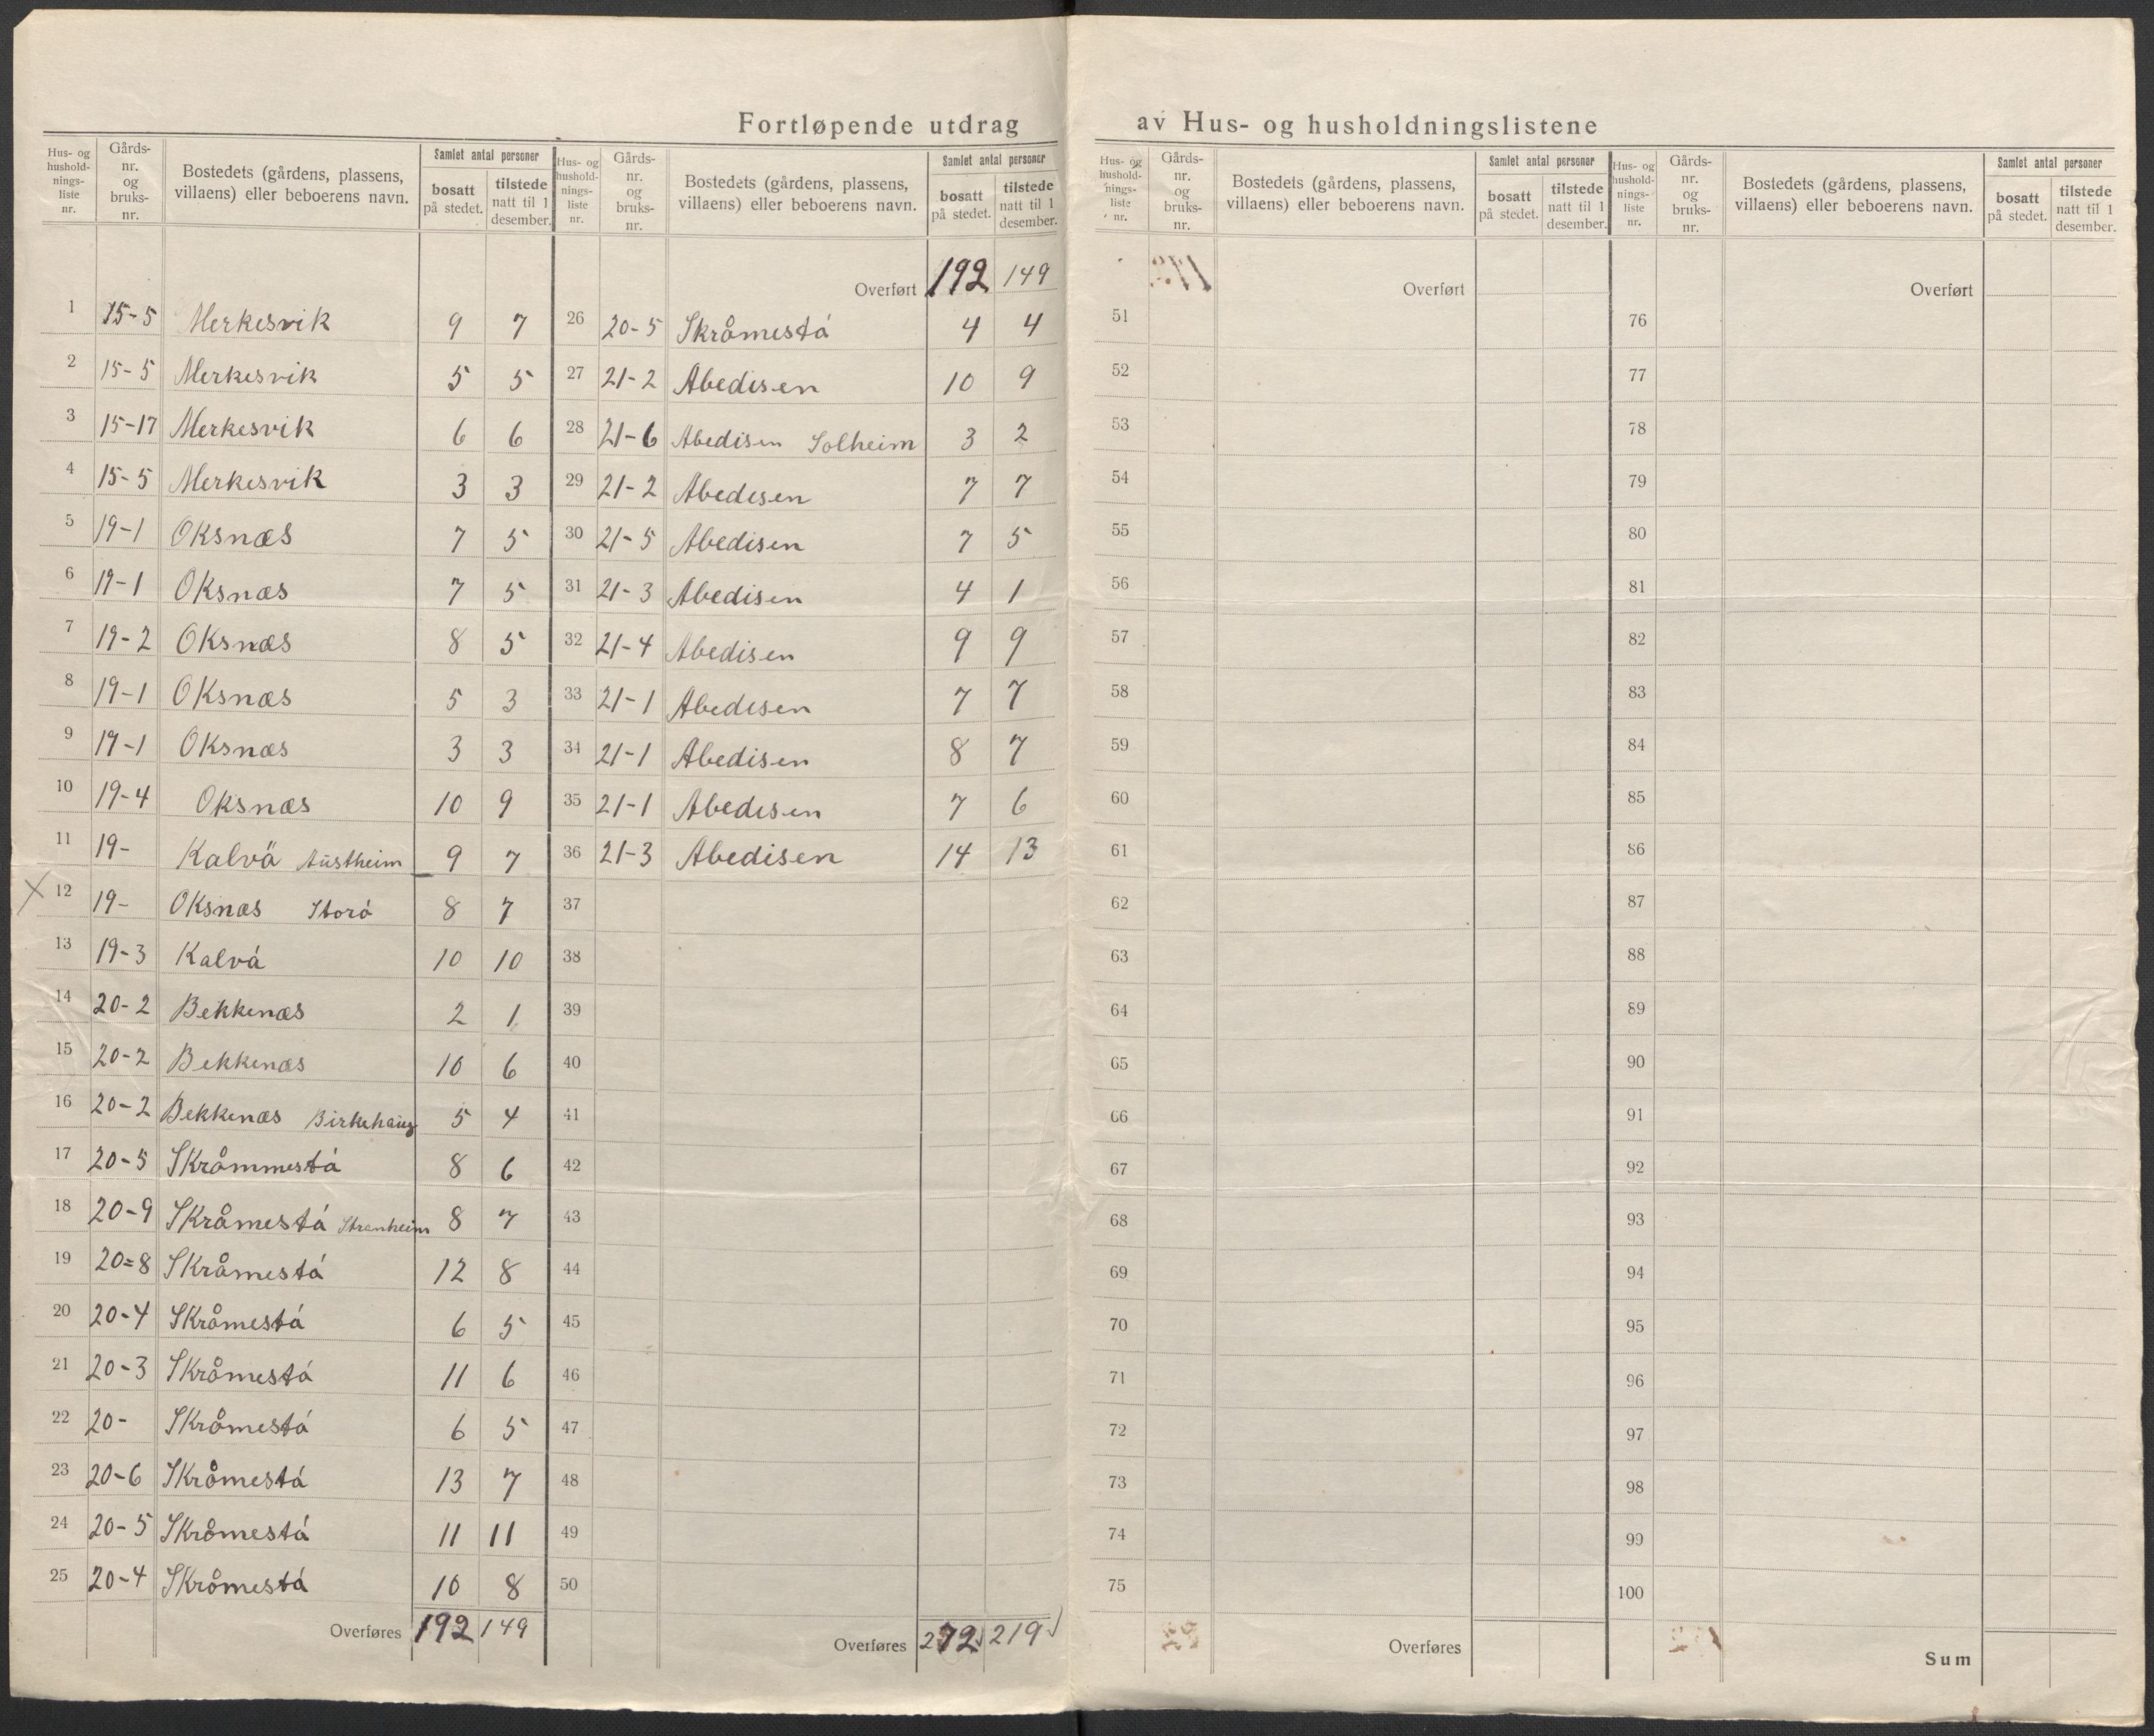 Fortløpende utdrag av Hus- og husholdningslistene
Hus- og hushold- nings- liste nr.
Gårds- nr. og bruks- nr.
Bostedets (gårdens, plassens, villaens) eller beboerens navn.
Samlet antal personer
bosatt på stedet.
tilstede natt til 1 desember.
1 15-5 Merkesvik 9 7
2 15-5 Merkesvik 5 5
3 15-17 Merkesvik 6 6
4 15-5 Merkesvik 3 3
5 19-1 Oksnæs 7 5
6 19-1 Oksnæs 7 5
7 19-2 Oksnæs 8 5
8 19-1 Oksnæs 5 3
9 19-1 Oksnæs 3 3
10 19-4 Oksnæs 10 9
11 19- Kalvå Austheim 9 7
X 12 19- Oksnæs Storå 8 7
13 19-3 Kalvå 10 10
14 20-2 Bekkenæs 2 1
15 20-2 Bekkenæs 10 6
16 20-2 Bekkenæs Birkehaug 5 4
17 20-5 Skråmmestå 8 6
18 20-9 Skråmestå Stranheim 8 7
19 20=8 Skråmestå 12 8
20 20-4 Skråmestå 6 5
21 20-3 Skråmestå 11 6
22 20- Skråmestå 6 5
23 20-6 Skråmestå 13 7
24 20-5 Skråmestå 11 11
25 20-4 Skråmestå 10 8
Overføres 192 149
Hus- og hushold- nings- liste nr.
Gårds- nr. og bruks- nr.
Bostedets (gårdens, plassens, villaens) eller beboerens navn.
Samlet antal personer
bosatt på stedet.
tilstede natt til 1 desember.
Overført 192 149
26 20-5 Skråmestå 4 4
27 21-2 Abedisen 10 9
28 21-6 Abedisen Solheim 3 2
29 21-2 Abedisen 7 7
30 21-5 Abedisen 7 5
31 21-3 Abedisen 4 1
32 21-4 Abedisen 9 9
33 21-1 Abedisen 7 7
34 21-1 Abedisen 8 7
35 21-1 Abedisen 7 6
36 21-3 Abedisen 14 13
37
38
39
40
41
42
43
44
45
46
47
48
49
50
Overføres 272 219
Hus- og hushold- nings- liste nr.
Gårds- nr. og bruks- nr.
Bostedets (gårdens, plassens, villaens) eller beboerens navn.
Samlet antal personer
bosatt på stedet.
tilstede natt til 1 desember.
Overført
51
52
53
54
55
56
57
58
59
60
61
62
63
64
65
66
67
68
69
70
71
72
73
74
75
Overføres
Hus- og hushold- nings- liste nr.
Gårds- nr. og bruks- nr.
Bostedets (gårdens, plassens, villaens) eller beboerens navn.
Samlet antal personer
bosatt på stedet.
tilstede natt til 1 desember.
Overført
76
77
78
79
80
81
82
83
84
85
86
87
88
89
90
91
92
93
94
95
96
97
98
99
100
Sum